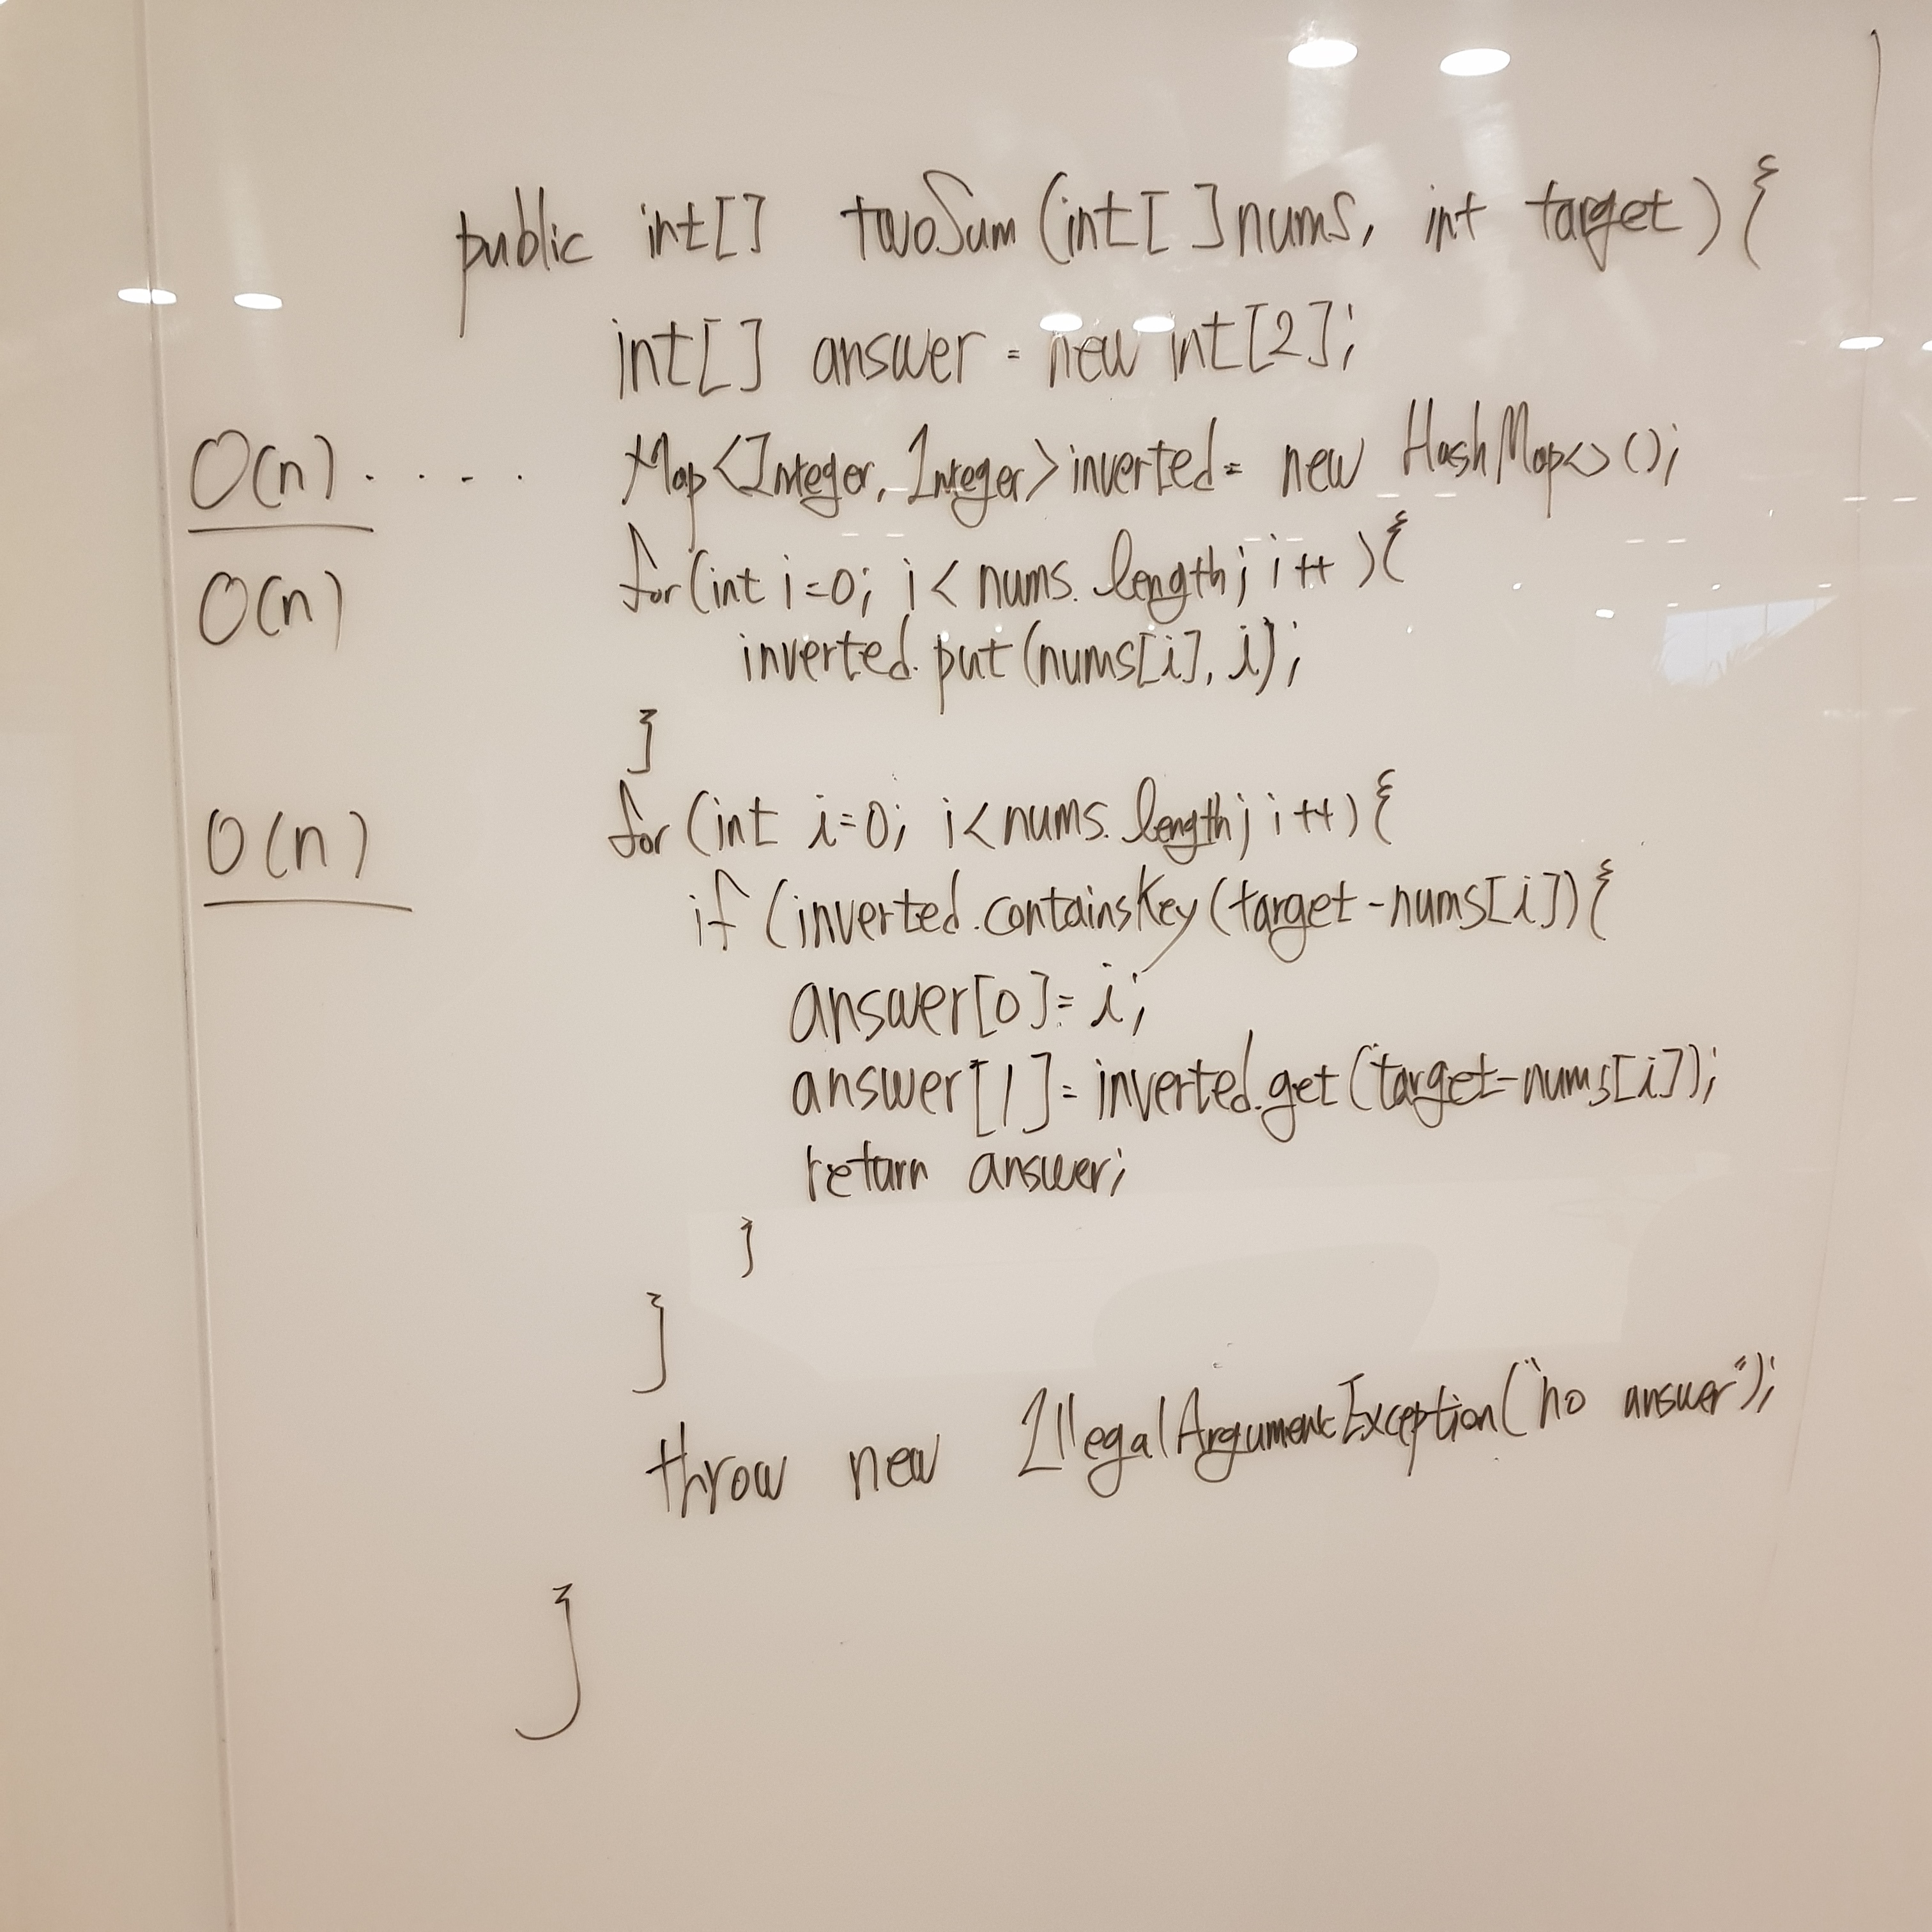 public int[] twoSum(int[] nums, int target){
int[] answer = new int[2];
O(n) .... Map<Integer, Integer> inverted = new HashMap<>();
O(n) for(int i=0; i < nums.length; i++){
inverted.put(nums[i], i);
}
O(n) for(int i=0; i<nums.length; i++){
if(inverted.containsKey(target-nums[i]){
answer[0]= i;
answer[1]= inverted.get(target-nums[i]);
return answer;
}
}
throw new IllegalArgumentException("no answer");
}